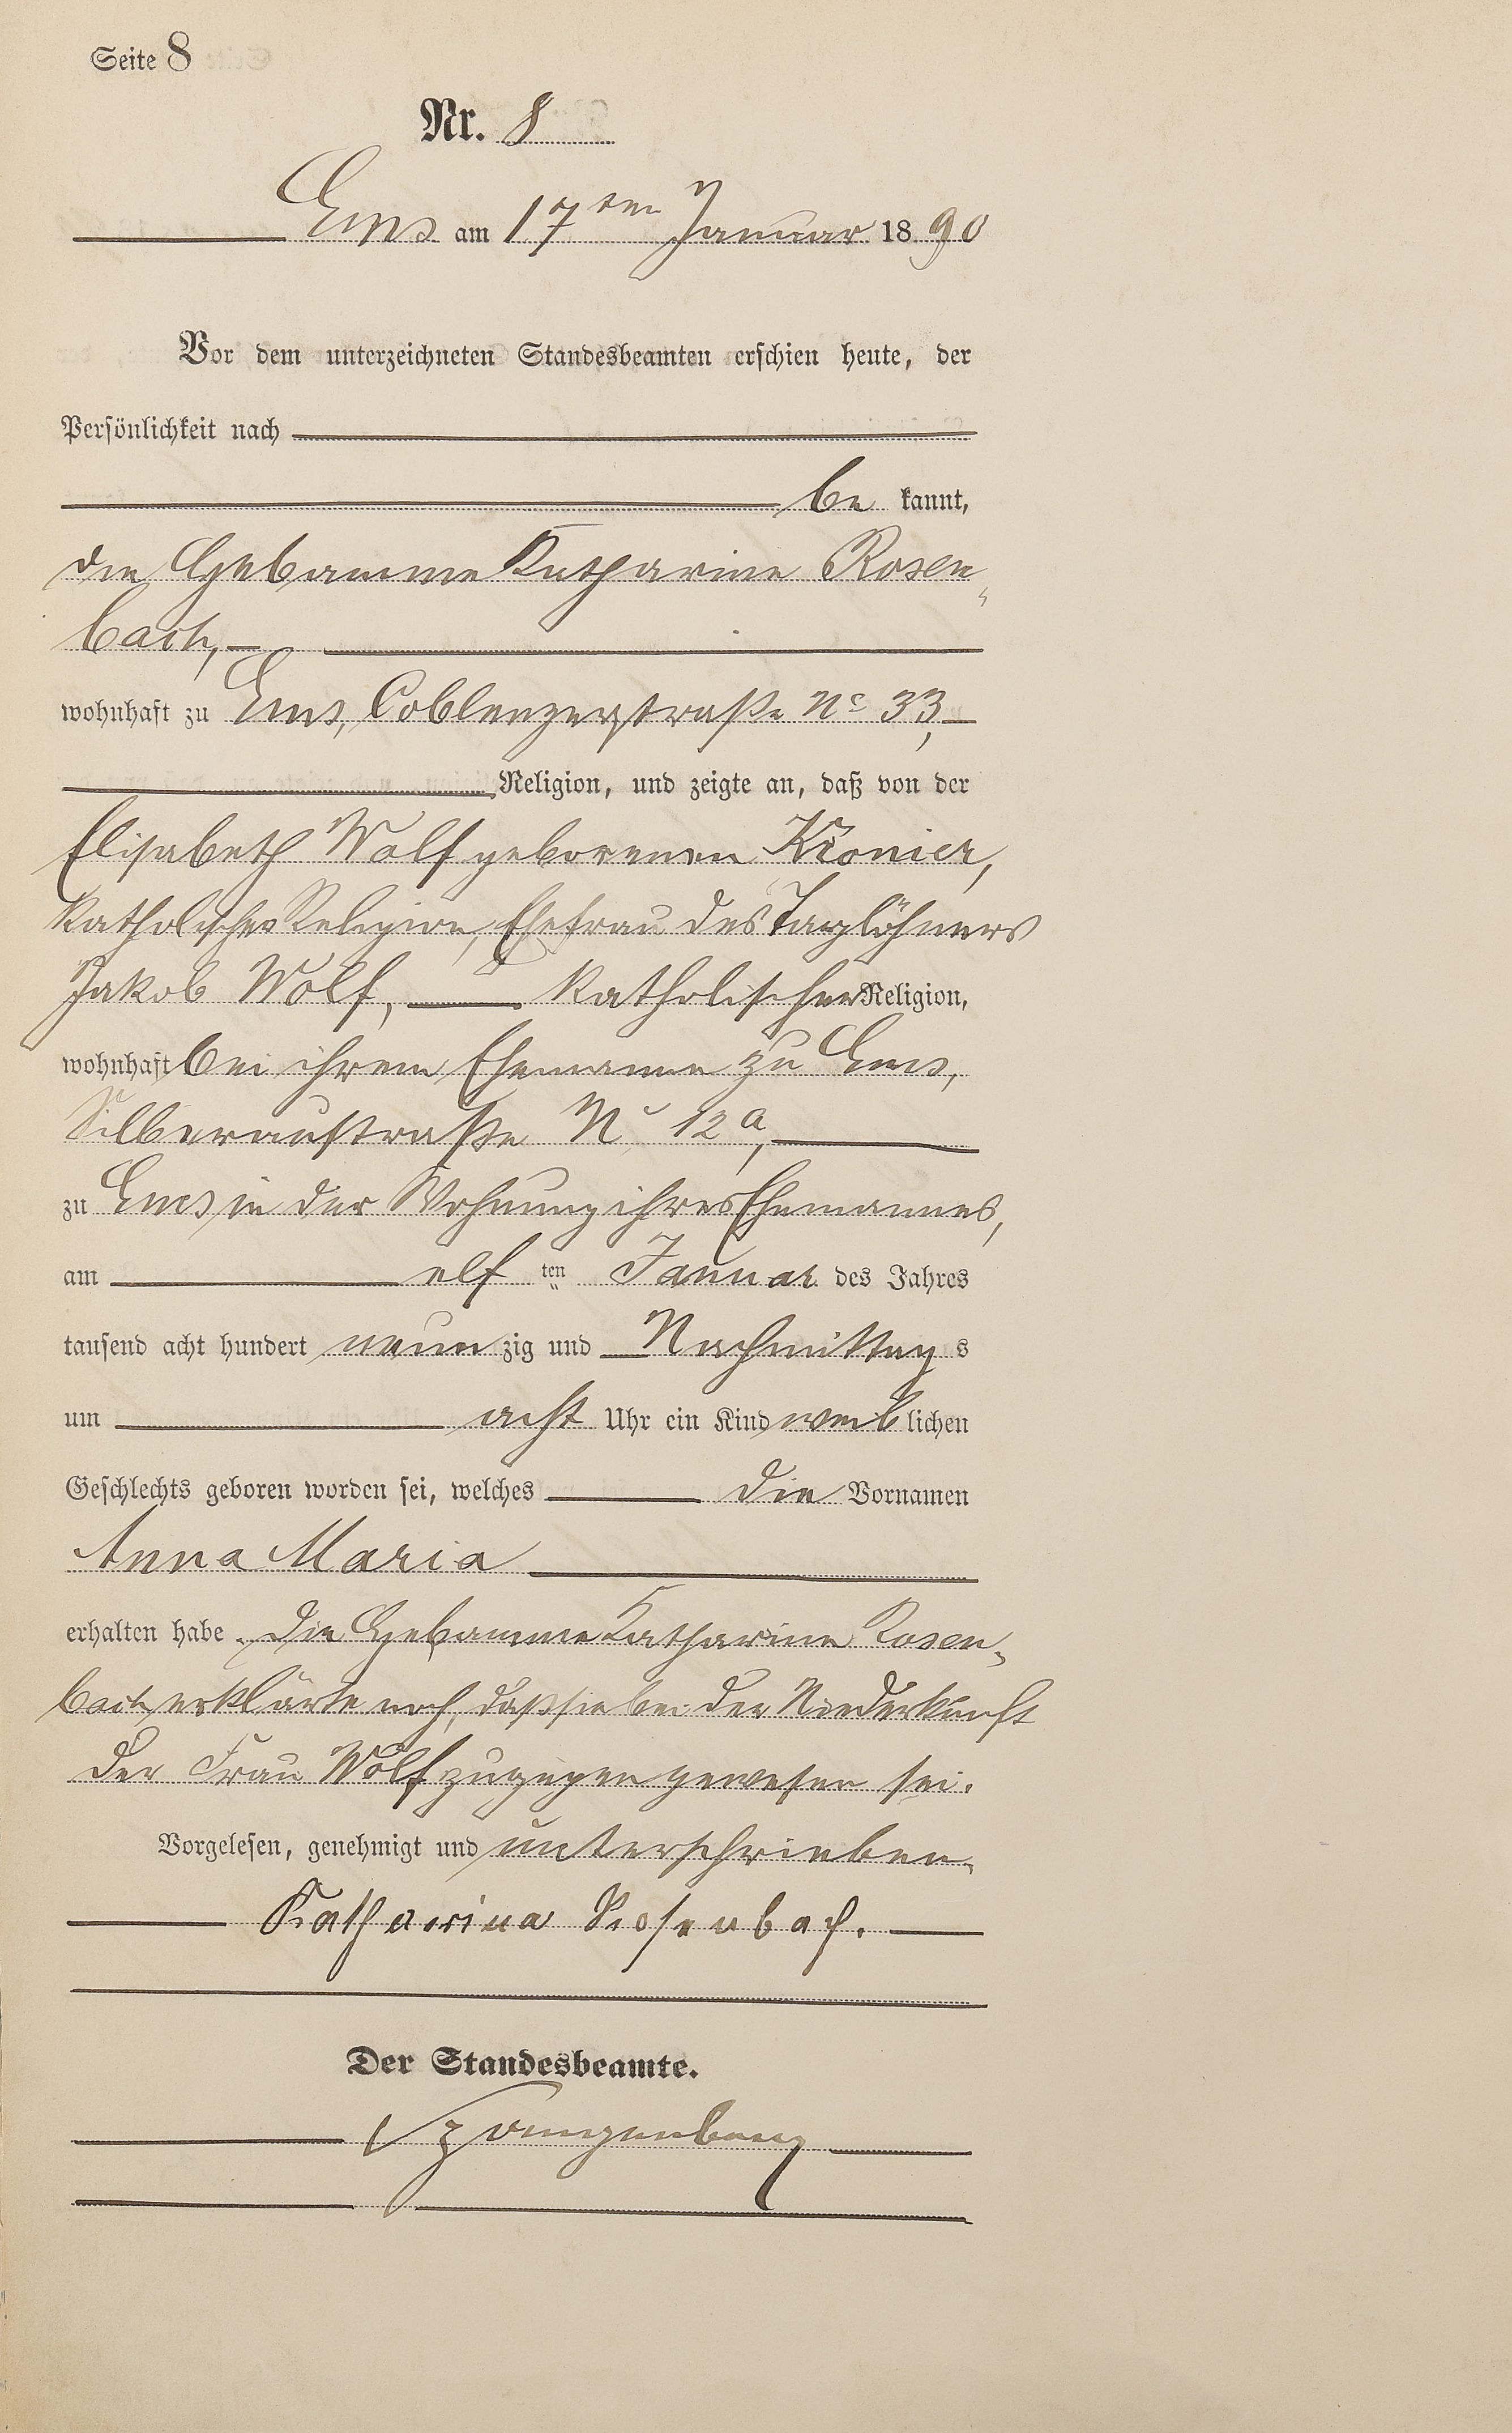 Seite 8
Nr. 8
Ems am 17ten Januar 1890
Vor dem unterzeichneten Standesbeamten erschien heute, der
Persönlichkeit nach
be kannt,
die Hebamme Katharine Rosen„
bach,
wohnhaft zu Ems, Coblenzerstraße No 33,
Religion, und zeigte an, daß von der
Elisabeth Wolf geborenen Kronier,
katholischer Religion, Ehefrau des Taglöhners
Jakob Wolf, katholischer Religion,
wohnhaft bei ihrem Ehemanne zu Ems,
Silberaustraße No 12a,
zu Ems in der Wohnung ihres Ehemannes,
am elf ten Januar des Jahres
tausend acht hundert neun zig und Nachmittag s
um acht Uhr ein Kind weib lichen
Geschlechts geboren worden sei, welches die Vornamen
Anna Maria
erhalten habe. Die Hebamme Katharine Rosen„
bach erklärte noch, daß sie bei der Niederkunft
der Frau Wolf zugegen gewesen sei.
Vorgelesen, genehmigt und unterschrieben.
Katharina Rosenbach.
Der Standesbeamte.
Spangenberg